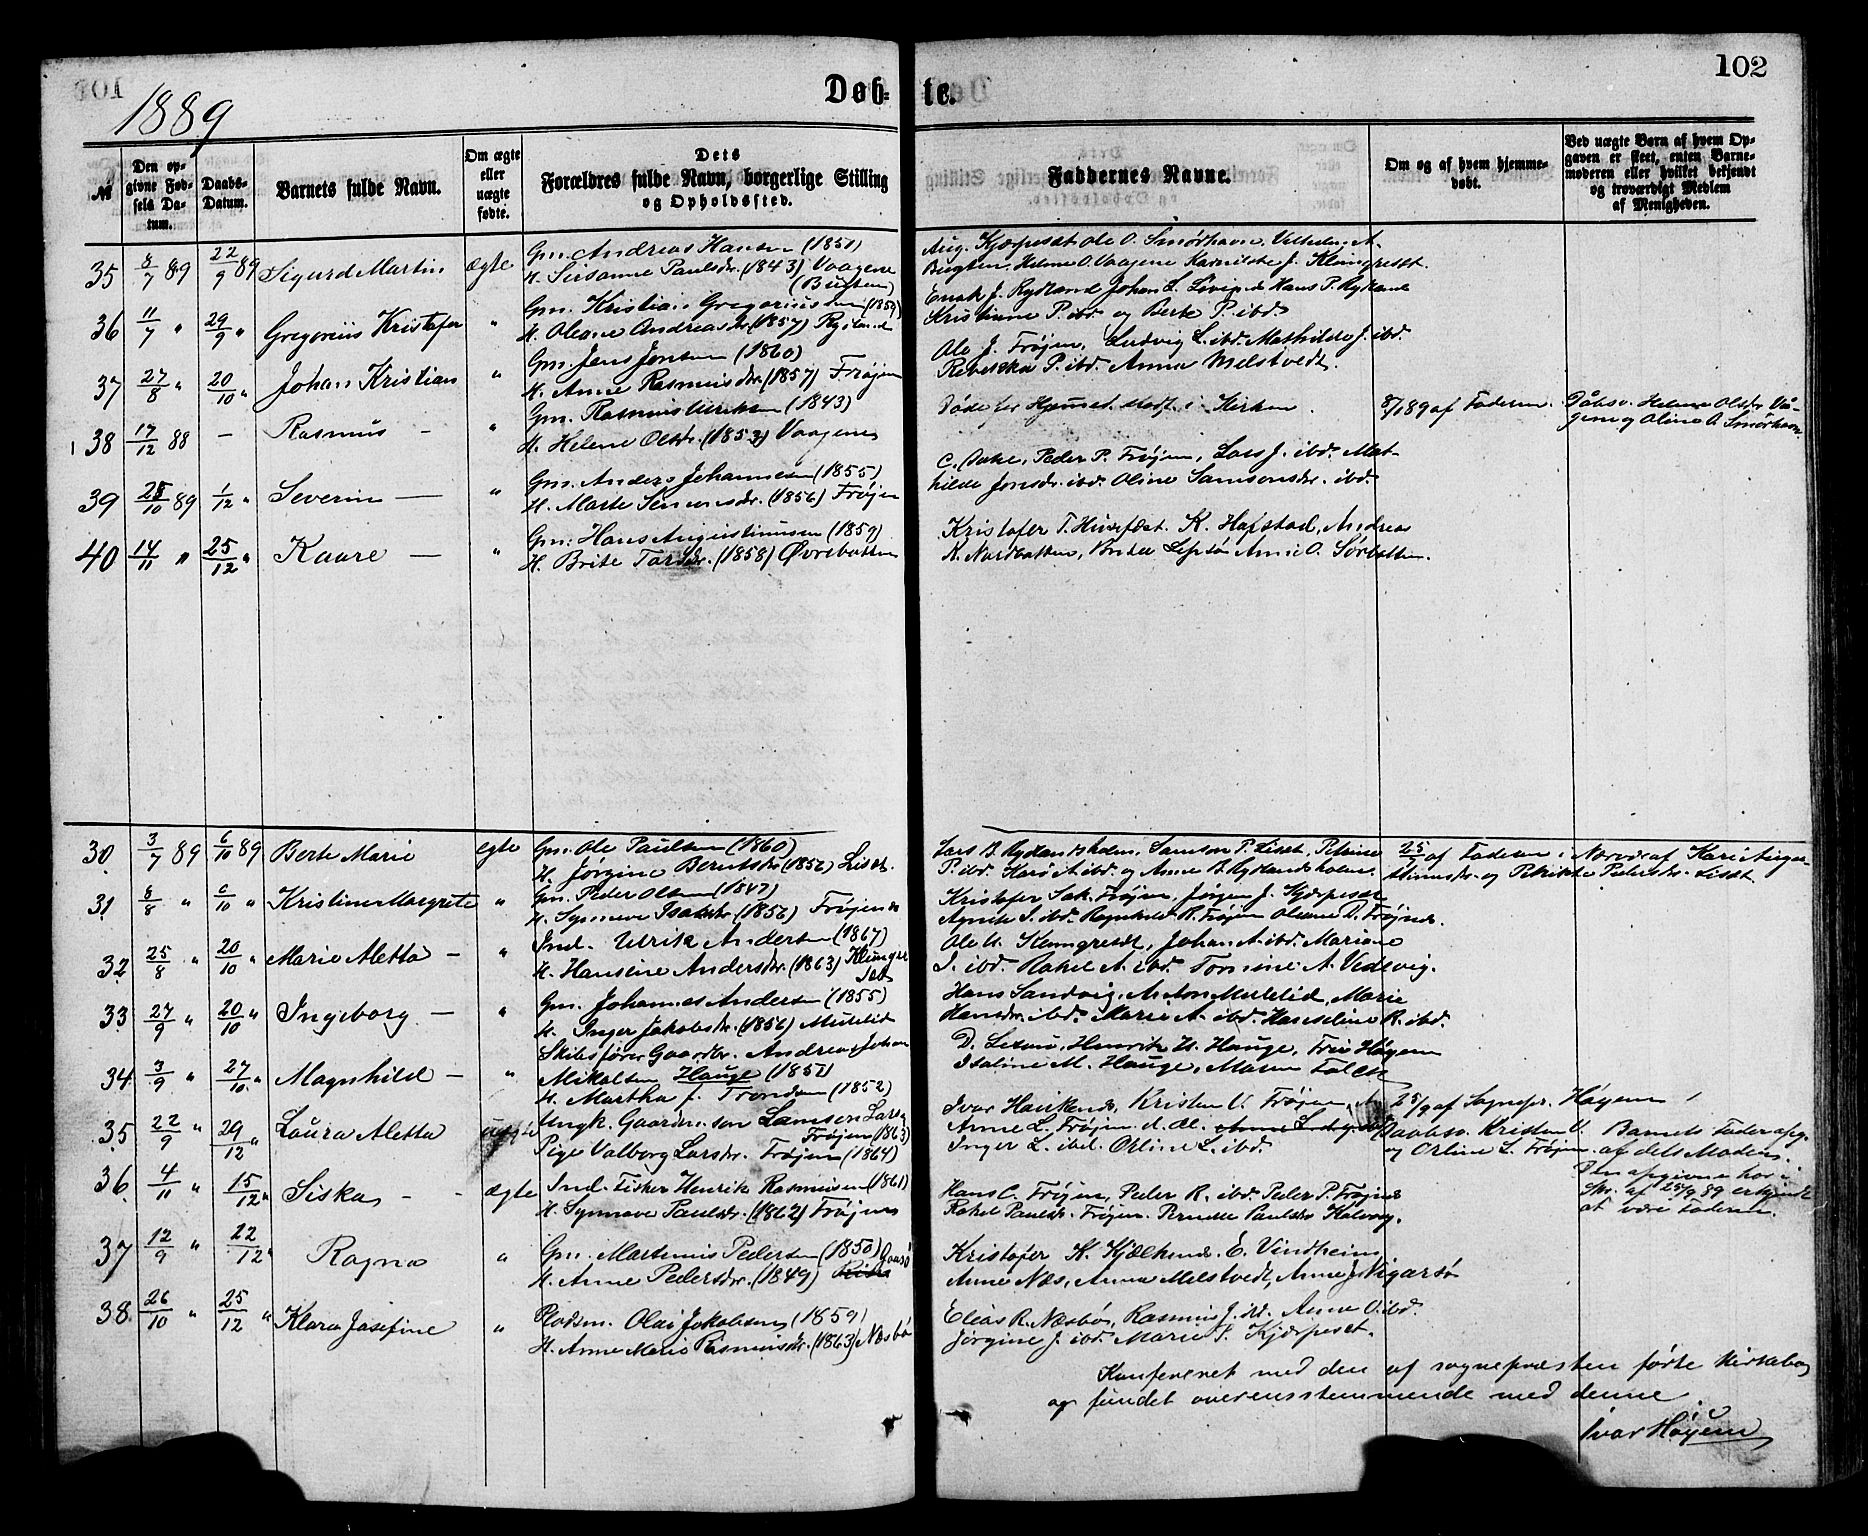 102
1889
Døb- te.
№
Den opgivne Fødsels Datum.
Daabs-Datum.
Barnets fulde Navn.
Om ægte eller uægte fødte.
Dets Forældres fulde Navn, borgerlige Stilling og Opholdssted.
Faddernes Navne.
Om og af hvem hjemmedøbt.
Ved uægte Børn af hvem Opgaven er skeet, enten Barnemoderen eller hvilket bekjendt og troværdigt Medlem af Menigheden.
35 8/7 89 22/9 89 Sigurd Martin ægte Gm. Andreas Hansen (1851)
H. Sisanne Paulsdr. (1843) Vaagene
(Bugten)
Aug. Kjærpeset Ole O. Smørhavn
Bugten, Helene O. Vaagene J. Klungreset.
36 11/7 " 29/9 " Gregorius Kristofer " Gm. Kristian Gregoriussen (1859)
H. Oleane Andreasdr. (1857) Ryland
Enok J. Rydland Johan L. Hans P. Rydland
Kristine P. ibd. og Berte P. ibd.
37 27/8 " 20/10 " Johan Kristian " Gm. Jens Jensen (1860)
H. Anne Rasmusdr. (1857) Frøjen
Ole J. Frøjen, Ludvig L. ibd. Mathilde J. ibd.
Rebekka P. ibd. Anna Melstvedt.
38 17/12 88 - Rasmus - " Gm. Rasmus Ulriksen (1843)
H. Helene Olsdr. (1853) Vaagene
Døde før Hjemmed. stadf. i Kirken. 8/1 89 af Faderen. Dåbsv. Helene Olsdr. Vågene og Oline A. Smørhavn
39 28/10 89 1/12 " Severin - " Gm. Anders Johannesen (1855)
H. Marte Simonsdr. (1856) Frøjen
C. Peder P. Frøjen, Lars J. ibd. Mathilde Jensdr. ibd. Oline Samsonsdr. ibd.
40 14/11 " 25/12 " Kaare - " Gm. Hans Augustinussen (1859)
H. Brite (1858) Øvrebotten
Kristofer T. K. Hafstad, Andreas
K. Nordbotten, Anne O. Sørbotten.
30 3/7 89 6/10 89 Berte Marie egte Gm. Ole Paulsen (1860)
H. Jørgine Berntsdr. (1856) Liset
Lars B. Rydlandsholm, Samson P. Liset, Petrine
P. ibd. A. ibd. og Anne B. Rydlandsholm.
25/7 af Faderen i Nærvær af Kari Augustinusdr. og Petrikke Pedersdr. Liset
31 8/8 " 6/10 " Kristine Margrete " Gm. Peder Olsen (1847)
H. Synneve Isaksdr. (1856) Frøjen
Kristofer Sak. Frøjen, Jørgen J. Kjærpeset
Agnete I. ibd. Ragnhild R. Frøjen Oleane D. Frøjen
32 25/8 " 20/10 " Marie Aletta - " Ind. Ulrik Andersen (1867)
H. Hansine Andersdr. (1863) Klungreset
Ole U. Klungreset, Johan A. ibd. Mariane
I. ibd. Rakel A. ibd. Tomine A. Vedvig.
33 27/9 " 20/10 " Ingeborg - " Gm. Johannes Andersen (1855)
H. Inger Jakobsdr. (1856) Myklelid
Hans Sandvig, Anton Myklelid, Marie
Hansdr. ibd. Marie A. ibd. Hanseline R. ibd.
34 3/9 " 27/10 " Magnhild - " Skibsfører Gaardbr. Andreas Johan
Mikalsen Hauge (1851)
H. Martha f. Trondsen (1852)
D. Henrik H. Hauge, Frue Høyem
Isaline M. Hauge, Maren Falck
35 22/9 " 29/12 " Laura Aletta uægte Ungk. Gaardm. søn Samson Lars
Frøjen (1863)
Pige Valborg Larsdr. Frøjen (1864)
Ivar Haukenæs, Kristen V. Frøjen,
Anne L. Frøjen
Inger L. ibd. Orline L. ibd.
25/9 af Sognepr. Høyem
Daabsv. Kristen V.
og Orline L. Frøjen.
Barnets Fader opg.
af dets Moder.
Den opgivne har i
Skr. af 25/9 89 erkjendt
at være Faderen.
36 4/11 " 15/12 " Siska - - ægte Ind. Fisker Henrik Rasmussen (1861)
H. Synneve Paulsdr. (1862) Frøjen
Hans C. Frøjen, Peder R. ibd. Peder P. Frøjen
Rakel Paulsdr. Frøjen. Pernelle Paulsdr. Kalvøg.
37 12/9 " 22/12 " Ragna " Gm. Martinus Pedersen (1850) Gaasø
H. Anne Pedersdr. (1849)
Kristofer K. Kjelkenes. E. Vindheim
Anne Næs, Anna Melstvedt, Anne J. Nigarsø
38 26/10 " 25/12 " Klara Josefine " Plodsm. Olai Jakobsen (1859)
H. Anne Marie Rasmusdr. (1863) Næsbø
Elias R. Næsbø, Rasmus J. ibd. Anne O. ibd.
Jørgine J. ibd. Marie P. Kjærpeset.
Konfereret med den af sognepræsten førte Kirkebog
og fundet overensstemmende med denne
Ivar Høyem